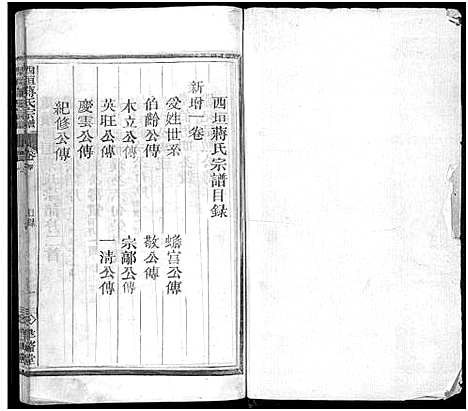 西垣蔣氏宗譜目錄
新增一卷
受姓世系
蟾宫公傳
伯齡公傳
敬公傳
木立公傳
宗鄗公傳
英旺公傳
一清公傳
慶雲公傳
紀修公傳
西垣蔣氏宗譜
目錄